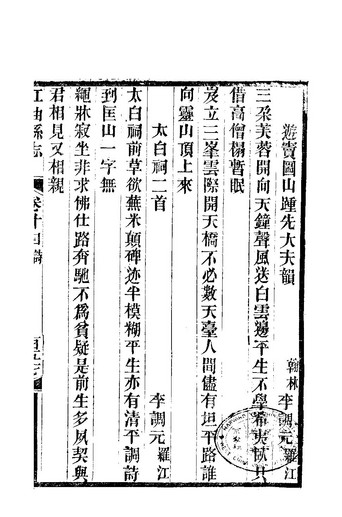 遊竇圌山踵先大夫韻 翰林李調元羅江
三朶芙蓉開向天鐘聲風送白雲邊平生不學希夷臥且
借高僧榻暫眠
岌立三峯雲際開天橋不必數天臺人間儘有坦平路誰
向靈山頂上來
太白祠二首 李調元羅江
太白祠前草欲蘇米顛碑迹半模糊平生亦有清平調詩
到匡山一字無
繩牀寂坐非求佛仕路奔馳不爲貧疑是前生多夙契與
君相見又相親
江油縣志 卷十四